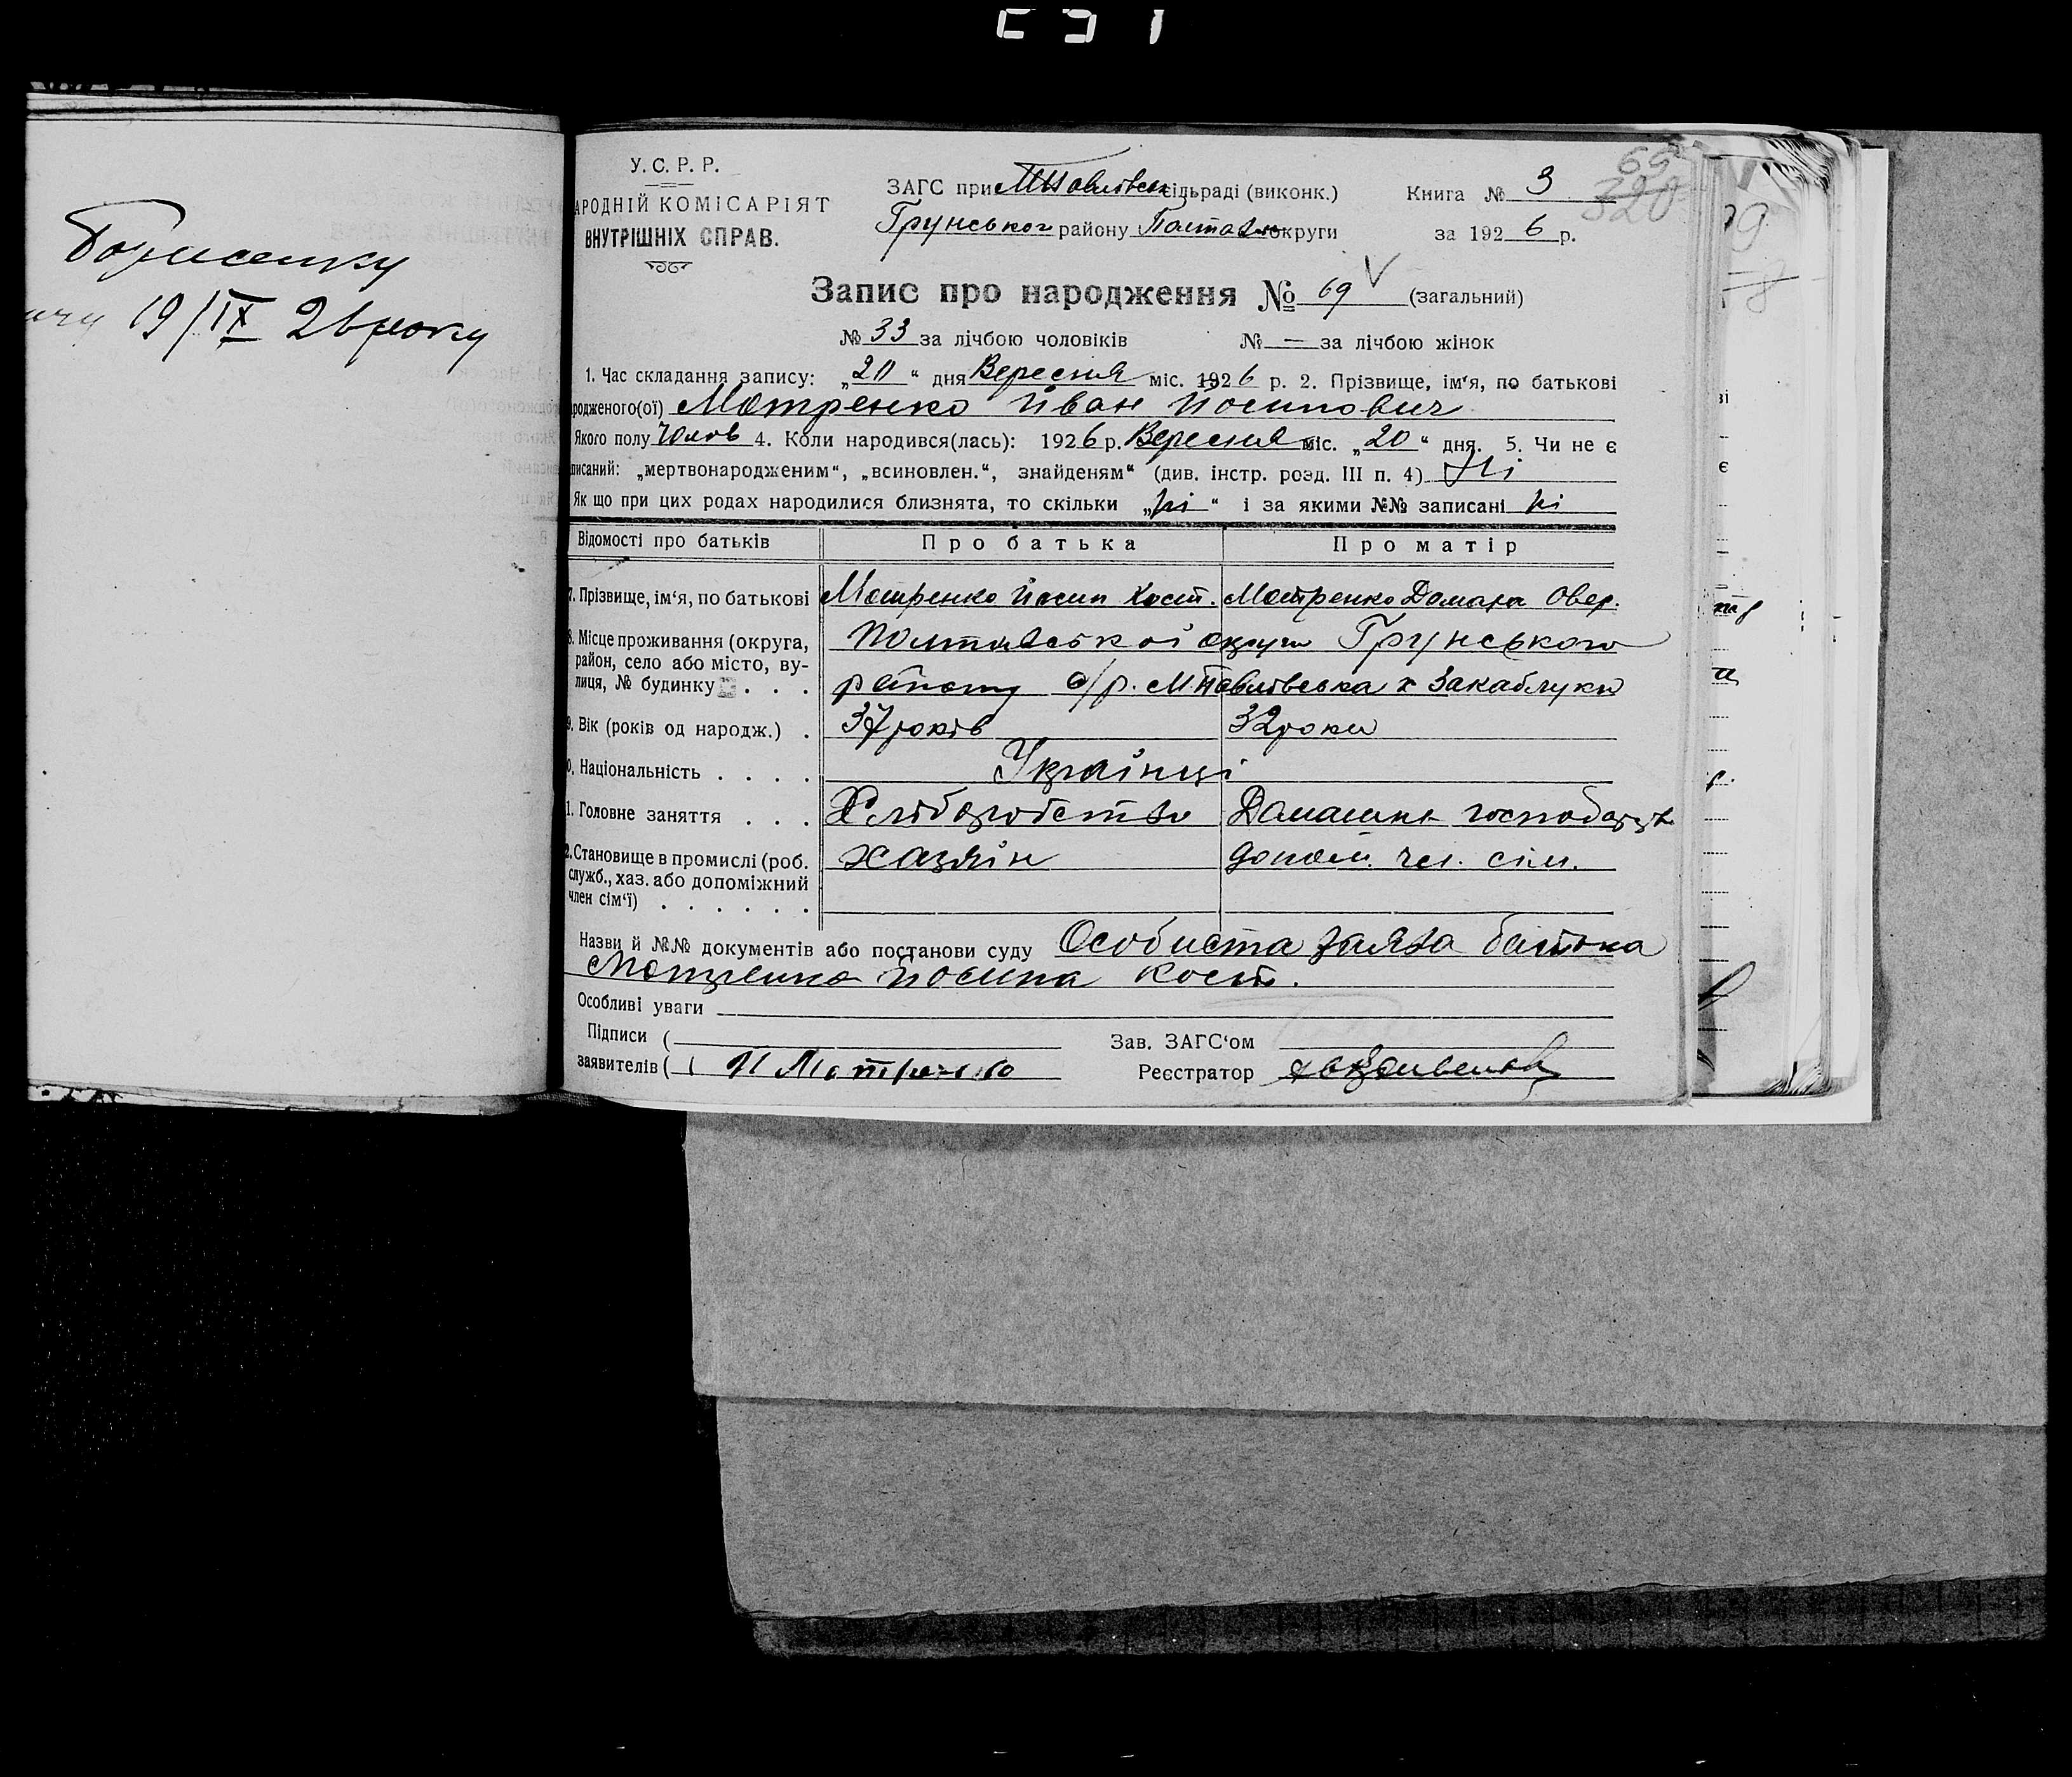 Борисенку
19/IX 26 року
У.С.Р.Р.
АРОДНІЙ КОМІСАРІЯТ
ВНУТРІШНІХ СПРАВ.
ЗАГС при М Павлівськ сільраді (виконк.)
Грунського району Полтавськ округи
Книга № 3
за 1926 р.
69
320
Запис про народження № 69 V (загальний)
№ 33 за лічбою чоловіків № — за лічбою жінок
1. Час складання запису: „20“ дня Вересня міс. 1926 р. 2. Прізвище, ім‘я, по батькові
родженого(ої) Мотренко Йван Йосипович
Якого полу Чолов 4. Коли народився(лась): 1926 р. Вересня міс. „20“ дня. 5. Чи не є
писаний: „мертвонародженим“, „всиновлен.“, знайденям“ (див. інстр. розд. III п. 4) Ні
Як що при цих родах народилися близнята, то скільки „ні“ і за якими №№ записані ні
Відомості про батьків Про батька Про матір
7. Прізвище, ім‘я, по батькові Мотренко Йосип Кост. Мотренко Домаха Овер.
8. Місце проживання (округа, район, село або місто, вулиця, № будинку . . . Полтавської округи Грунського
району с/р. М.Павлівська х Закаблуки
9. Вік (років од народж.) . 37 років 32 роки
0. Національність . . . . Українці
1. Головне заняття . . . Хліборобство Домашнє господарств
2. Становище в промислі (роб. служб., хаз. або допоміжний член сім‘ї) . . . . . . хазяїн допом. чл. сім.
Назви й №№ документів або постанови суду Особиста заява батька
Мотренка Йосипа Кост.
Особливі уваги
Підписи ( Зав. ЗАГС‘ом
заявителів ( Й Мотренко Реєстратор